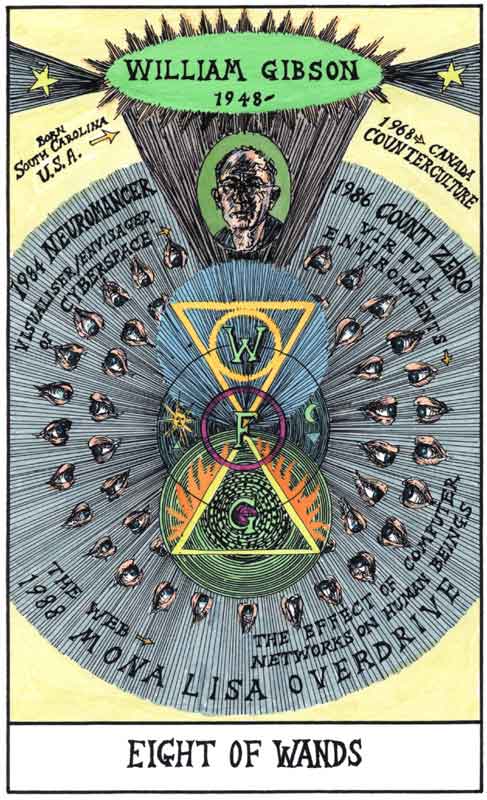 WILLIAM GIBSON
1948-
BORN
SOUTH CAROLINA
U.S.A.
1968⇒ CANADA
COUNTERCULTURE
1984 NEUROMANCER
VISUALISER/ENVISAGER
OF CYBERSPACE
1986 COUNT ZERO
VIRTUAL
ENVIRONMENTS
W
F
G
THE WEB
1988 MONA LISA OVERDRIVE
THE EFFECT OF COMPUTER
NETWORKS ON HUMAN BEINGS
EIGHT OF WANDS